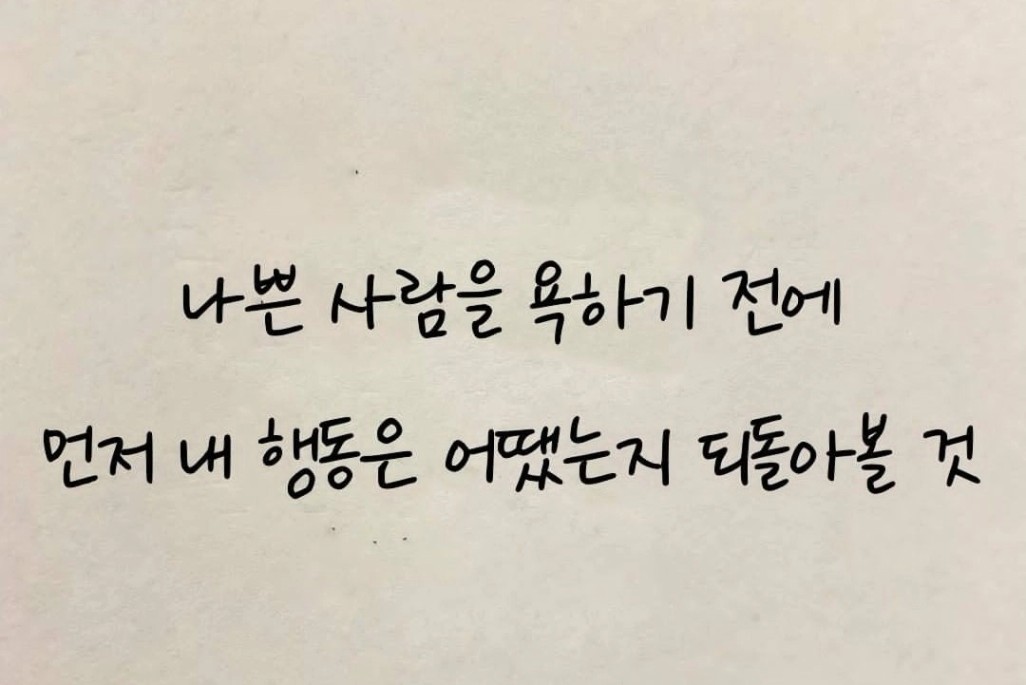 나쁜 사람을 욕하기 전에
먼저 내 행동은 어땠는지 되돌아볼 것